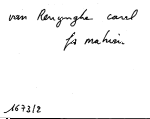 van Renynghe carel
fs mahieu.
1673/2